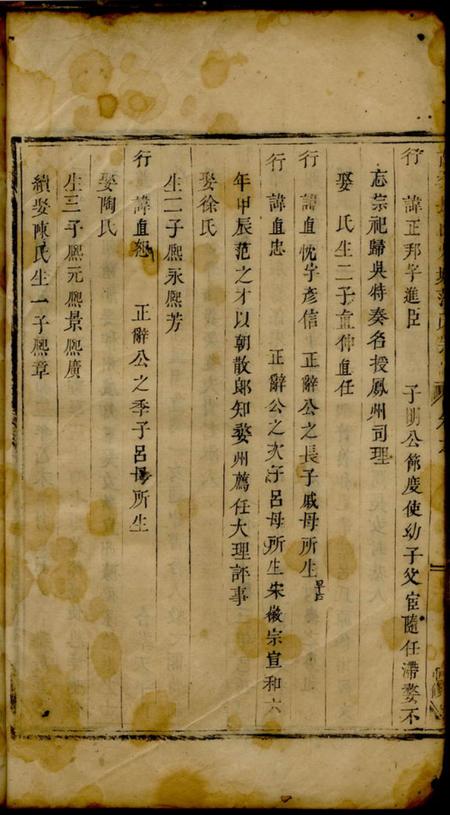 行 諱正邦字進臣 子明公節度使幼子父宦隨任滯婺不
忘宗祀歸吳特奏名授鳳州司理
娶 氏生二子直伸直任
行 諱直忱字彥信 正辭公之長子戚母所生早亡
行 諱直忠 正辭公之次子呂母所生宋徽宗宣和六
年甲辰范之才以朝散郎知婺州薦任大理評事
娶徐氏
生二子熙永熙芳
行 諱直 正辭公之季子呂母所生
娶陶氏
生三子熙元熙景熙廣
續娶陳氏生一子熙章